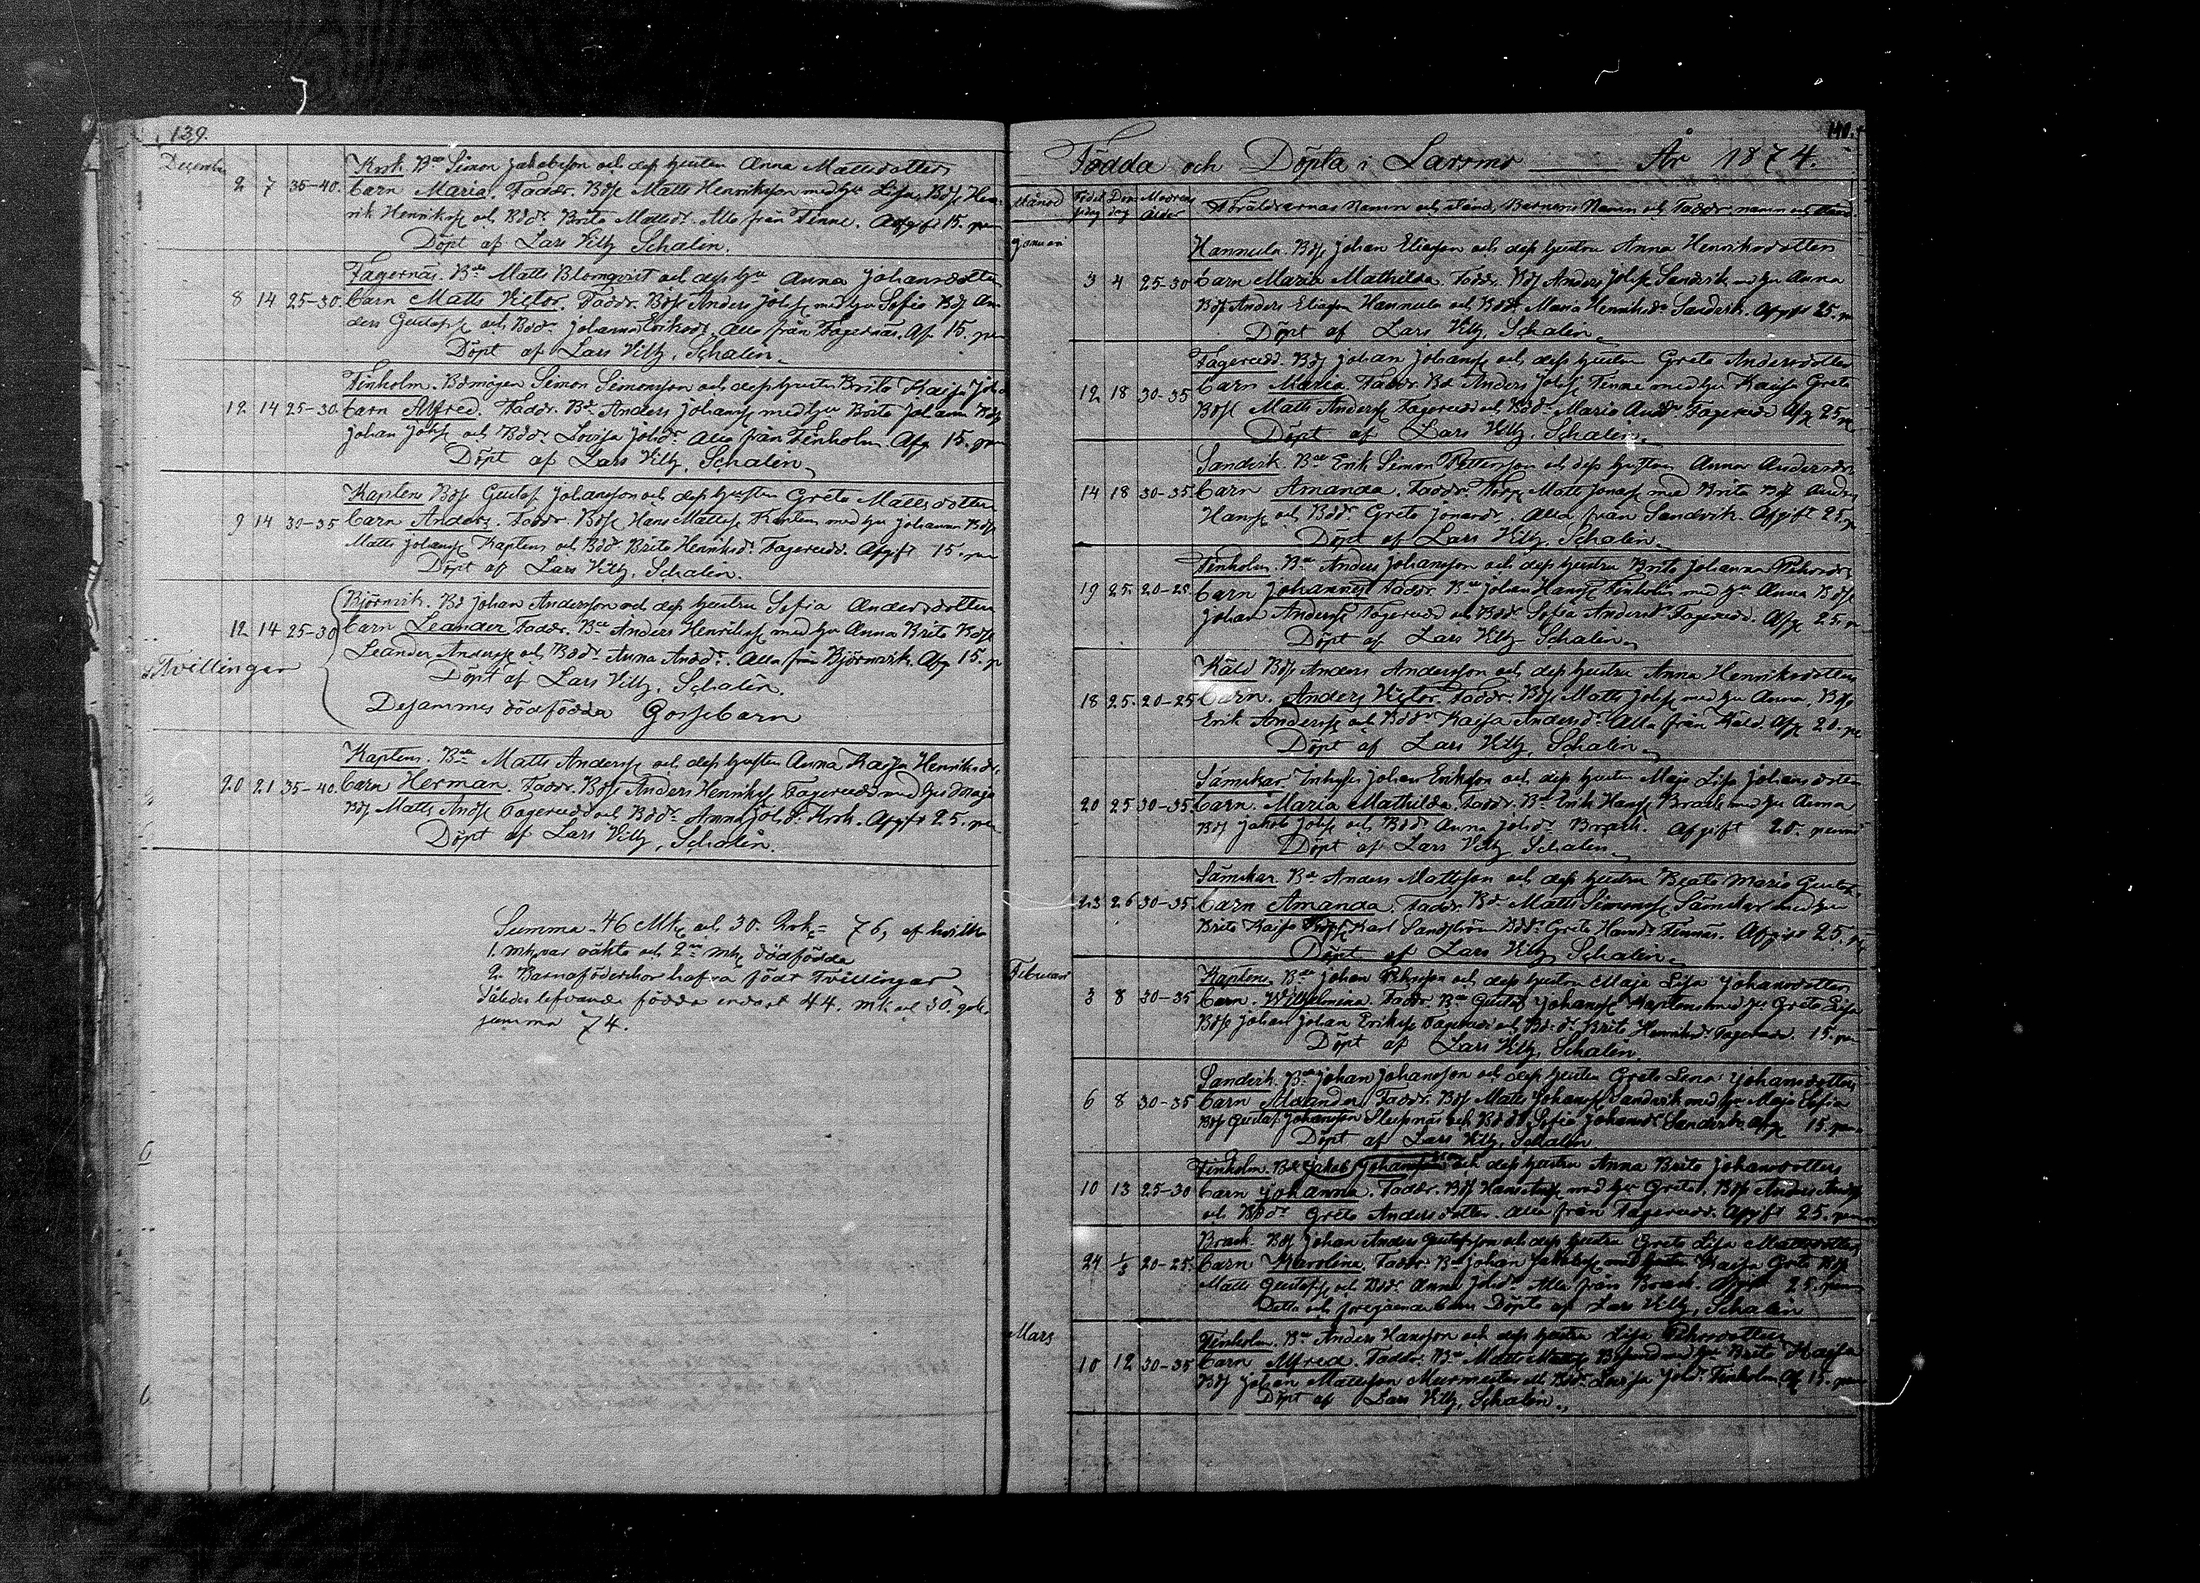 139.
December
Krok. Bde Simon Jakobsson och dess hustru Anna Mattsdotters
2 7 35-40. barn Maria. Faddr. Bdse Matts Henriksson med hu Lisa, Bdse Hen-
rik Henrikss och Bddr Brita Mattsdr. Alla från Finne. Afgift 15. pen
Döpt af Lars Vilh. Schalin.
Fagernäs. Bde Matts Blomqvist och dess hu Anna Johansdotters
8 14 25-30. barn Matts Victor. Faddr. Bdse Anders Johss med hu Sofia Bdse An-
ders Gustafss och Bddr Johanna Eriksdr. Alla från Fagernäs. Af. 15. pen
Döpt af Lars Vilh. Schalin.
Finholm. Bdmågen Simon Simonsson och dess hustru Brita Kaisa Joh
12 14 25-30. barn Alfred. Faddr. Bde Anders Johanss med hu Brita Johanna Bdse
Johan Johss och Bddr Lovisa Johdr. Alla från Finholm Afg. 15. pen
Döpt af Lars Vilh. Schalin.
Kaptens Bdse Gustaf Johansson och dess hustru Greta Mattsdotters
9 14 30-35 barn Anders. Faddr. Bdse Hans Mattss Kaptens med hu Johanna Bdse
Matts Johanss Kaptens och Bddr Brita Henriksdr Fagerudd. Afgift 15. pen
Döpt af Lars Vilh. Schalin.
Björnvik. Bd Johan Andersson och dess hustru Sofia Andersdotters
12 14 25-30 barn Leander Faddr. Bde Anders Henrikss med hu Anna Brita Bdse
Leander Anderss och Bddr Anna Anddr. Alla från Björnvik. Afg. 15. p
Tvillingar
Döpt af Lars Vilh. Schalin.
Desammes dödfödda Gossebarn
Kaptens. Bde Matts Anderss och dess hustru Anna Kaisa Henriksdr.
20 21 35-40. barn Herman. Faddr. Bdse Anders Henrikss Fagerudd med hus Maja
Bdse Matts Andss Fagerudd och Bddr Anna Johdr Krok. Afgift 25. pen
Döpt af Lars Vilh. Schalin.
Summa 46 Mk och 30. Qvk = 76, af hvilka
1. mk var oäkta och 2ne mk dödfödda
2. Barnaföderskor hafva födt Tvillingar
Således lefvande födda endast 44. mk och 30. qvk.
summa 74.
Födda och Döpta i Larsmo År 1874.
Månad Födels dag Döp dag Modrens ålder Föräldrarnas Namn och stånd, Barnens Namn och Faddr. namn och stånd
Januari
Hannula. Bdse Johan Eliasson och dess hustru Anna Henriksdotters
3 4 25-30 barn Maria Mathilda. Faddr. Bdse Anders Johss Sandvik med hu Anna
Bdse Anders Eliasson Hannula och Bddr Maria Henriksdr Sandvik. Afgift 25. p
Döpt af Lars Vilh. Schalin.
Fagerudd. Bdse Johan Johanss och dess hustru Greta Andersdotters
12 18 30-35 barn Maria. Faddr. Bd Anders Johss Finne med hu Kaisa Greta
Bdse Matts Anderss Fagerudd och Bddr Maria Anddr Fagerudd Afg. 25. p
Döpt af Lars Vilh. Schalin.
Sandvik. Bde Erik Simon Pettersson och dess hustru Anna Andersdr
14 18 30-35. barn Amanda. Faddr. Torp Matts Jonass med Brita Bdse Anders
Hanss och Bddr. Greta Jonasdr. Alla från Sandvik. Afgift 25. p
Döpt af Lars Vilh. Schalin.
Finholm. Bde Anders Johansson och dess hustru Brita Johanna Pehrsdr
19 25. 20-25. barn Johannes. Faddr. Bde Johan Hanss Finholm med hu Anna Bdse
Johan Anderss Fagerudd och Bddr Sofia Andersdr Fagerudd. Afg. 25. p
Döpt af Lars Vilh. Schalin.
Käld Bdse Anders Andersson och dess hustru Anna Henriksdotters
18 25. 20-25 barn. Anders Victor. Faddr. Bdse Matts Johss med hu Anna, Bdse
Erik Anderss och Bddr Kaisa Andersdr. Alla från Käld. Afg. 20. p
Döpt af Lars Vilh. Schalin.
Sämskar Inhyses Johan Eriksson och dess hustru Maja Lisa Johansdotters
20 25 30-35 barn. Maria Mathilda. Faddr. Bde Erik Hanss Brask med hu Anna
Bdse Jakob Johss och Bddr Anna Johdr Brask. Afgift 25. penni
Döpt af Lars Vilh. Schalin.
Sämskar. Bde Anders Mattsson och dess hustru Beata Maria Gustafs
23 26 30-35. barn Amanda. Faddr. Bd Matts Simonss Sämskar med hu
Brita Kaisa Karl Sandström Bddr. Greta Hansdr Finnäs. Afgift 25. p
Döpt af Lars Vilh. Schalin.
Februari
Kaptens. Bde Johan Pehrsson och dess hustru Maja Lisa Johansdotters
3 8 30-35 barn. Wilhelmina. Faddr. Bde Gustaf Johanss Kaptens med hu Greta Lisa
Bdse Johan Johan Erikss Fagerudd och Bddr Brita Henriksdr Fagerudd. 15. pen
Döpt af Lars Vilh. Schalin.
Sandvik. Bde Johan Johansson och dess hustru Greta Lena Johansdotters
6 8 30-35 barn Maanda Faddr. Bdse Matts Johanss Sandvik med hu Maja Sofia
Bdse Gustaf Johansson Sleipnäs och Bddr Sofia Johansdr Sandvik Afg. 15. pen
Döpt af Lars Vilh. Schalin
Finholm. Bde Jakob Johansson och dess hustru Anna Brita Johansdotters
10 13 25-30 barn Johanna. Faddr. Bdse Hans Andss med hu Greta, Bdse Anders Andss
och Bddr Greta Andersdotter. Alla från Fagerudd. Afgift 25. penni
Brask. Bdse Johan Anders Gustafsson och dess hustru Greta Lisa Mattsdotters
24 1/3 20-25. barn Karolina, Faddr. Bde Johan Jakobss med hustru Kaisa Greta Bdse
Matts Gustafss och Bddr. Anna Johdr. Alla från Brask. Afgift 25. penni
Detta och föregående barn Döpte af Lars Vilh. Schalin
Mars
Finholm. Bde Anders Hansson och dess hustru Lisa Pehrsdotters
10 12 30-35 barn Alfred. Faddr. Bde Matts Mattss med hu Brita Kaisa
Bdse Johan Mattsson Murmester och Bddr Lovisa Johdr Finholm Af. 15. penni
Döpt af Lars Vilh. Schalin.